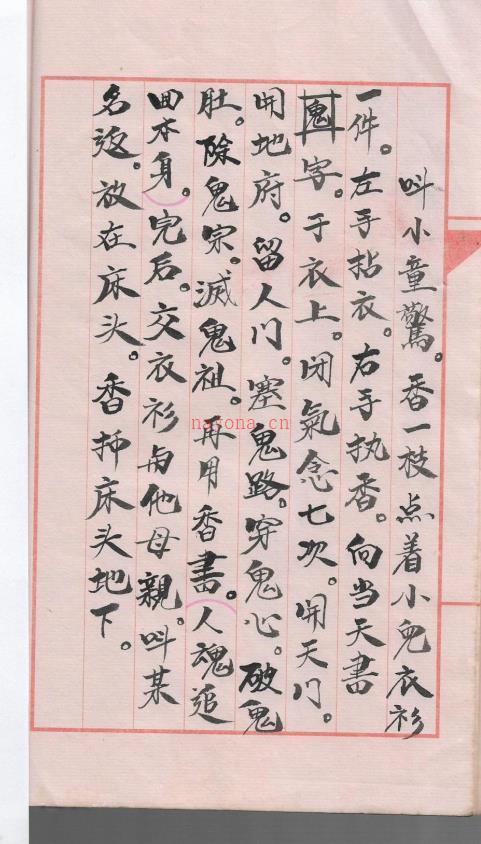 叫小童驚。香一枝点着小児衣衫
一件。左手拈衣。右手执香。向当天書
鬼字。于衣上。闭氣念七次。開天门。
開地府。留人门。塞鬼路。穿鬼心。破鬼
肚。除鬼宗。滅鬼祖。再用香書。人魂追
回本身。完后。交衣衫与他母親。叫某
名返。放在床头。香挿床头地下。
nayona.cn